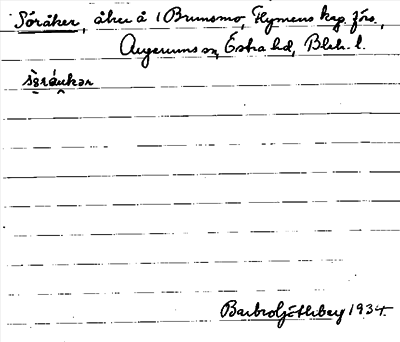 Söråker, åker å 1 Brunsmo, Flymens kap. förs.,
Augerums sn, Östra hd, Blek. l.
sèráukər
Barbro Götherberg 1934.